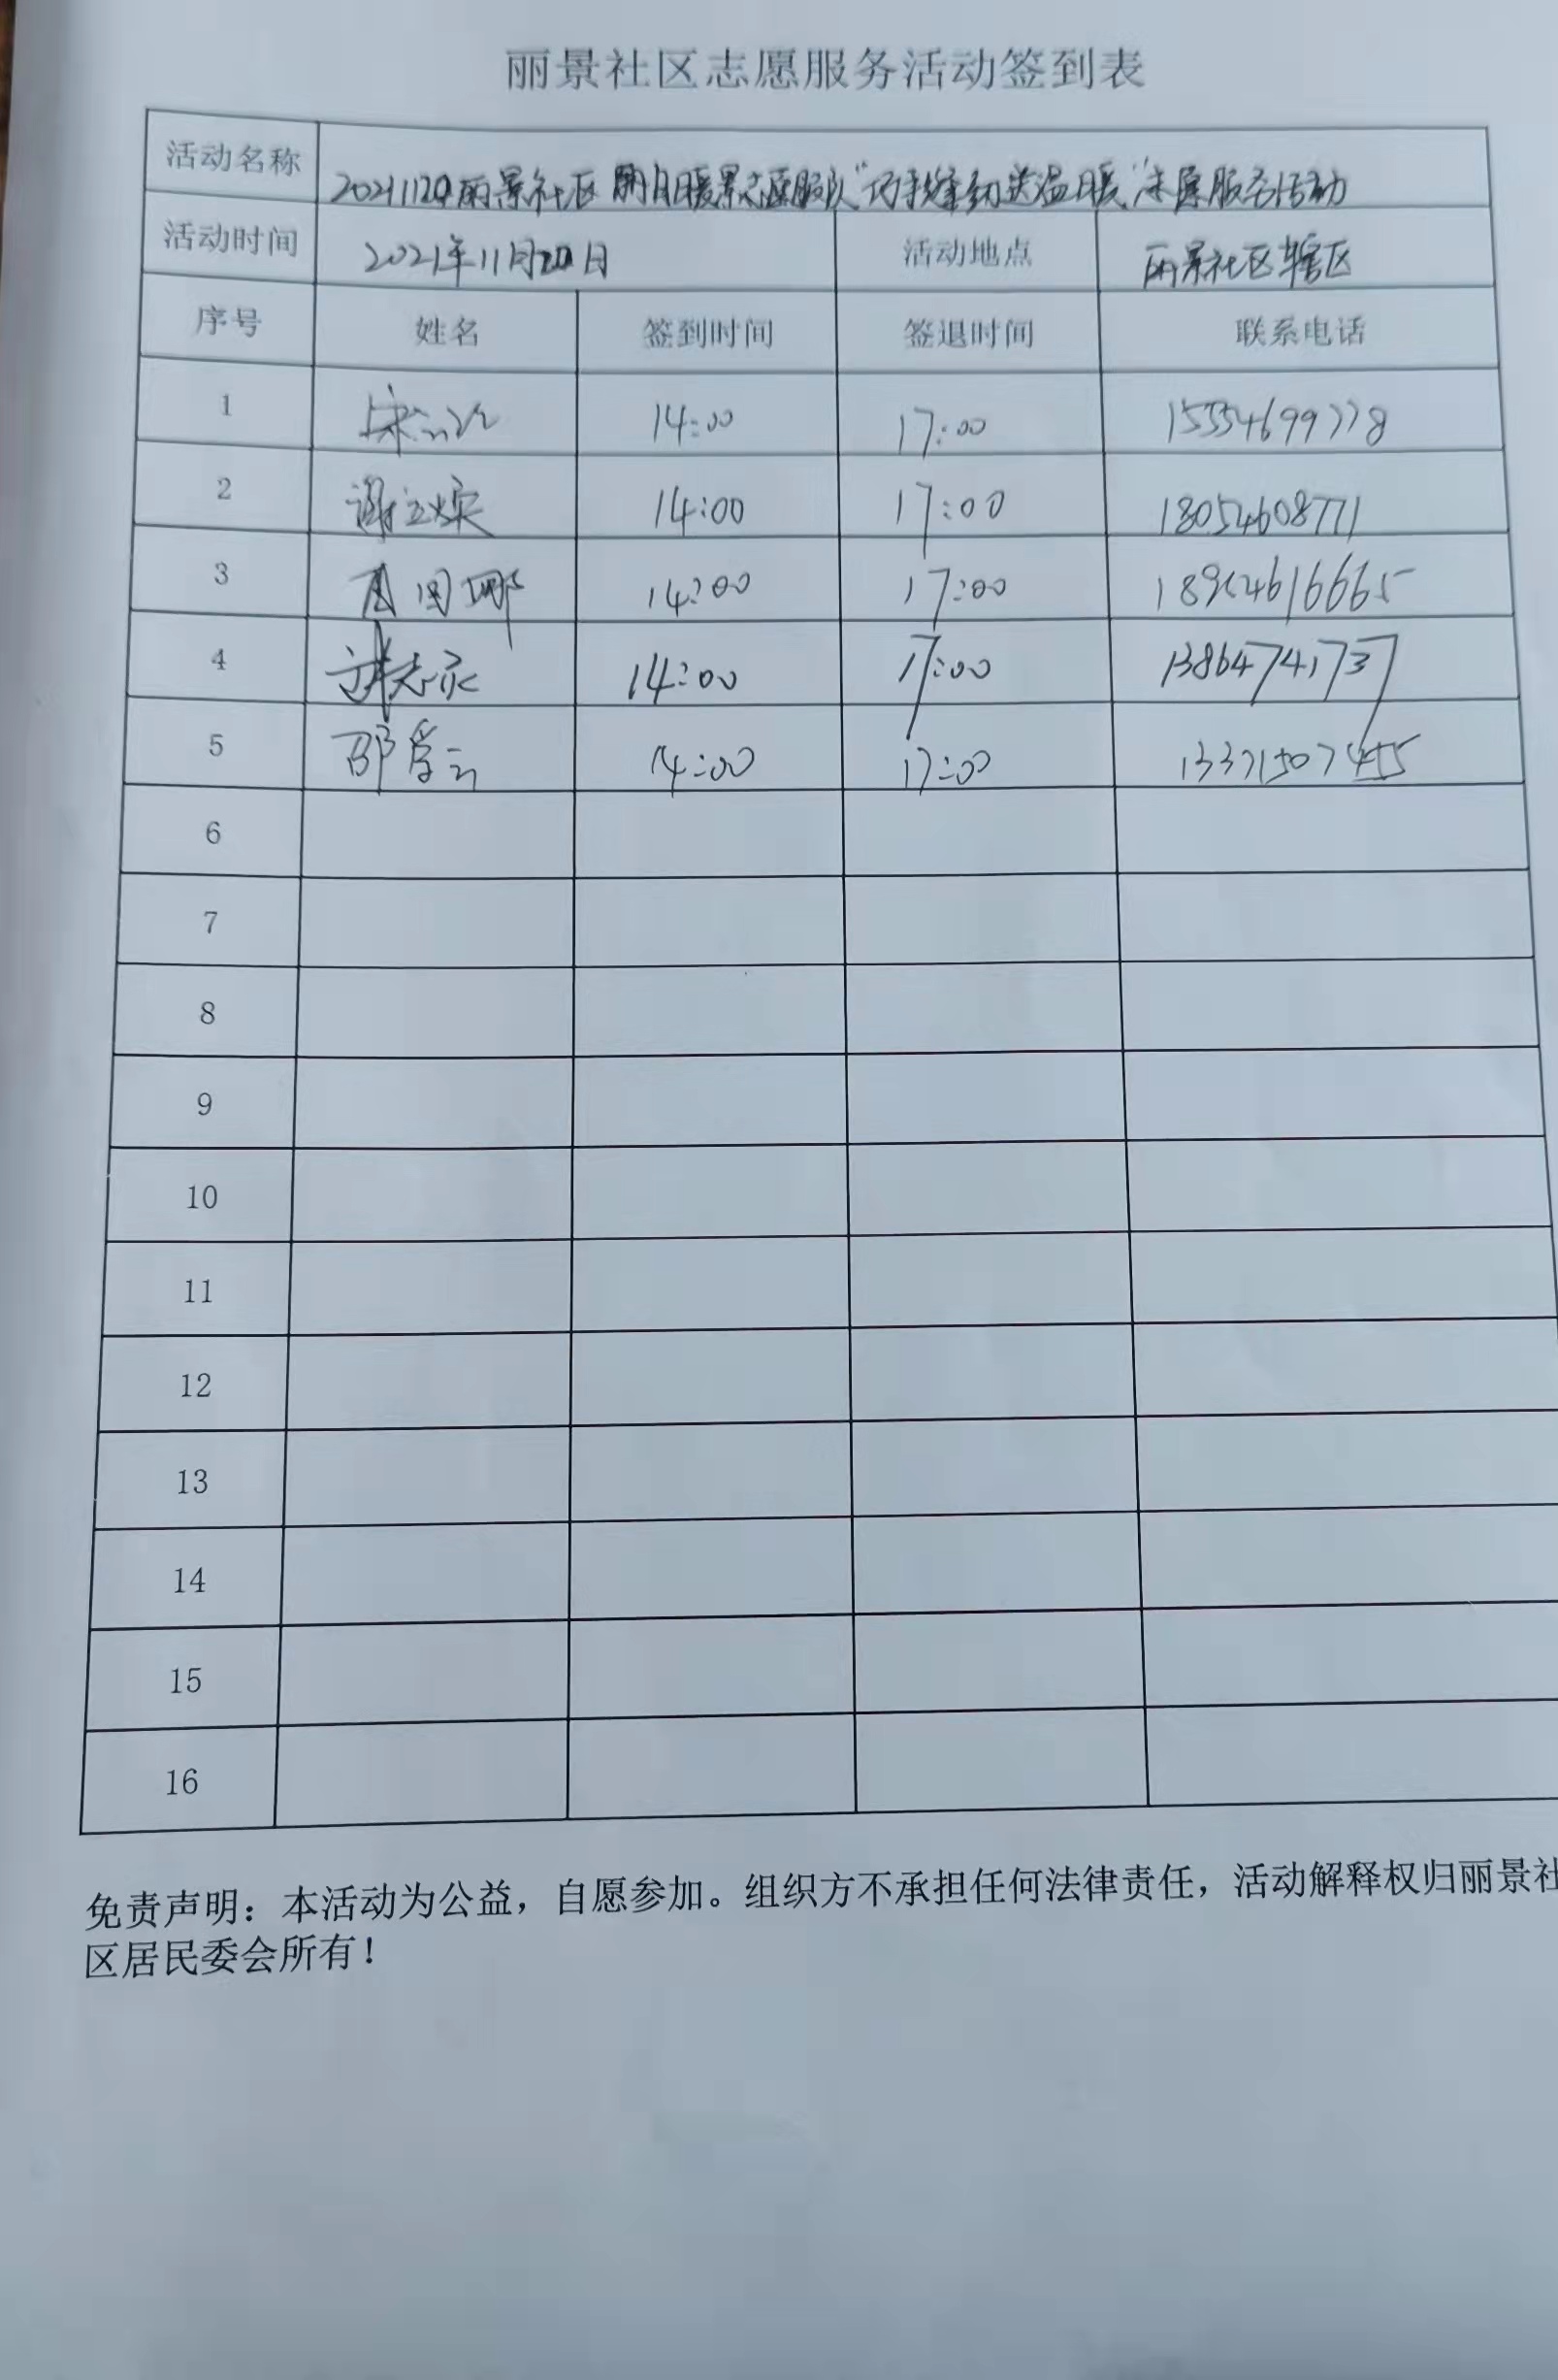 丽景社区志愿服务活动签到表
活动名称 20211120丽景社区 志愿服队“巧手缝纫送温暖”志愿服务活动
活动时间 2021年11月20日 活动地点 丽景社区辖区
序号 姓名 签到时间 签退时间 联系电话
1 14:00 17:00 15554699778
2 14:00 17:00 18054608771
3 14:00 17:00 18954616665
4 14:00 17:00 13864741737
5 邵爱云 14:00 17:00 13371507455
6
7
8
9
10
11
12
13
14
15
16
免责声明：本活动为公益，自愿参加。组织方不承担任何法律责任，活动解释权归丽景社
区居民委会所有！